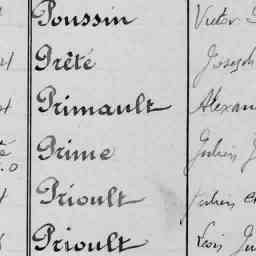 Poussin Victor
Prêté Joseph
Primault Alexan
Prime Julien
Prioult Julien
Prioult